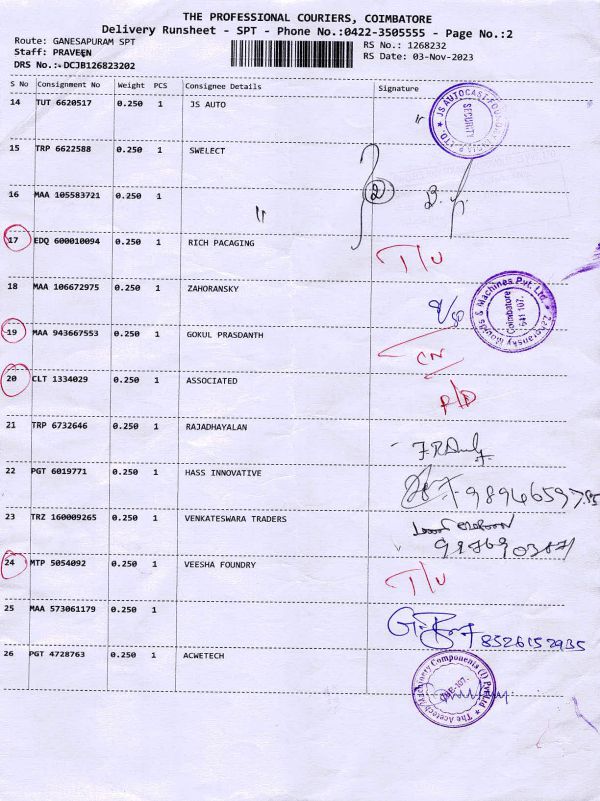 THE PROFESSIONAL COURIERS, COIMBATORE
Delivery Runsheet - SPT - Phone No.:0422-3505555 - Page No.:2
Route: GANESAPURAM SPT
Staff: PRAVEEN
DRS No.:-DCJB126823202
RS No.: 1268232
RS Date: 03-Nov-2023
S No Consignment No Weight PCS Consignee Details Signature
14 TUT 6620517 0.250 1 JS AUTO
JS AUTOCAST FOUNDRY INDIA P LTD. SECURITY
15 TRP 6622588 0.250 1 SWELECT
16 MAA 105583721 0.250 1
2
17 EDQ 600010094 0.250 1 RICH PACAGING T/U
18 MAA 106672975 0.250 1 ZAHORANSKY
Zahoransky Moulds & Machines Pvt. Ltd. Coimbatore 641 107.
19 MAA 943667553 0.250 1 GOKUL PRASDANTH CN
20 CLT 1334029 0.250 1 ASSOCIATED R/D
21 TRP 6732646 0.250 1 RAJADHAYALAN
22 PGT 6019771 0.250 1 HASS INNOVATIVE
23 TRZ 160009265 0.250 1 VENKATESWARA TRADERS
24 MTP 5054092 0.250 1 VEESHA FOUNDRY T/U
25 MAA 573061179 0.250 1 8526152935
26 PGT 4728763 0.250 1 ACWETECH
The Acetech Machinery Components (I) Pvt Ltd